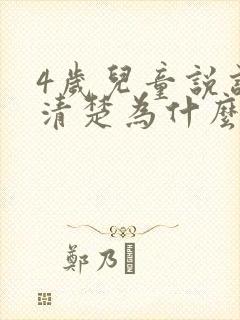 4歲兒童說話
清楚為什麼
鄭乃